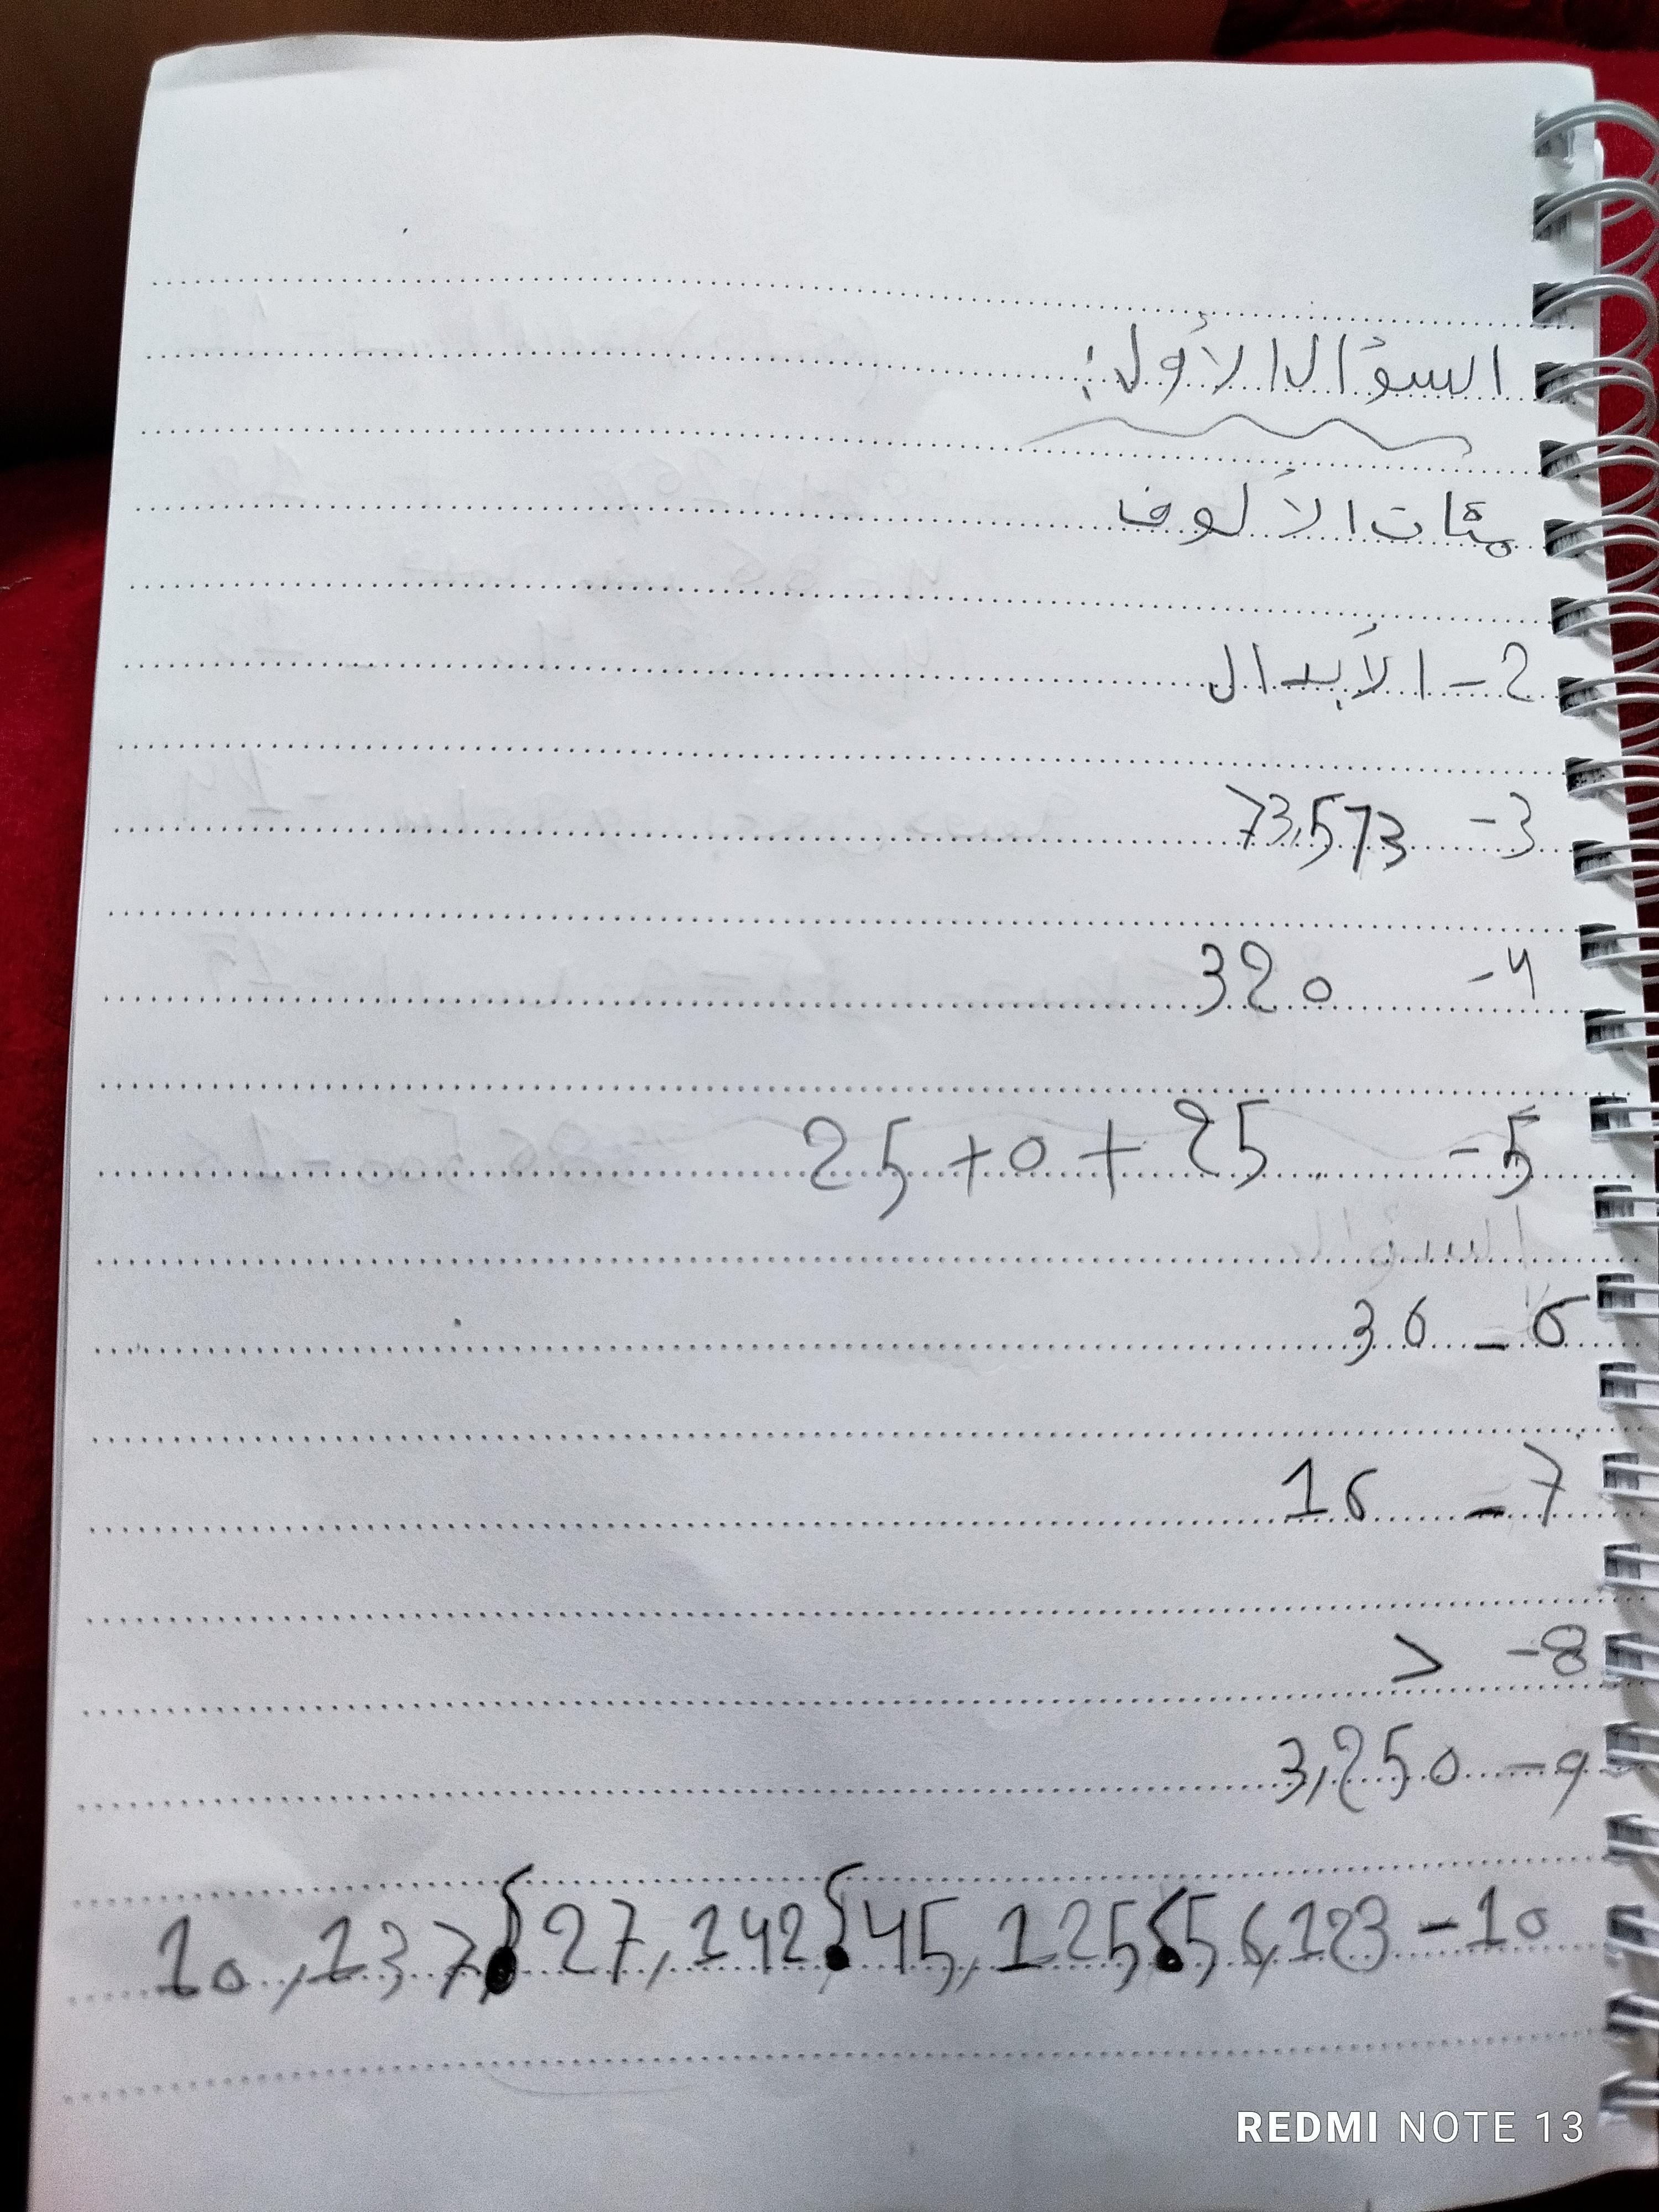 السؤال الأول:
مئات الألوف
2 - الأبدال
3 - 73,573
4 - 320
5 - 25 + 0 + 25
6 - 36
7 - 16
8 - >
9 - 3,250
10 - 56,123 ؛ 45,125 ؛ 27,142 ؛ 10,137
REDMI NOTE 13